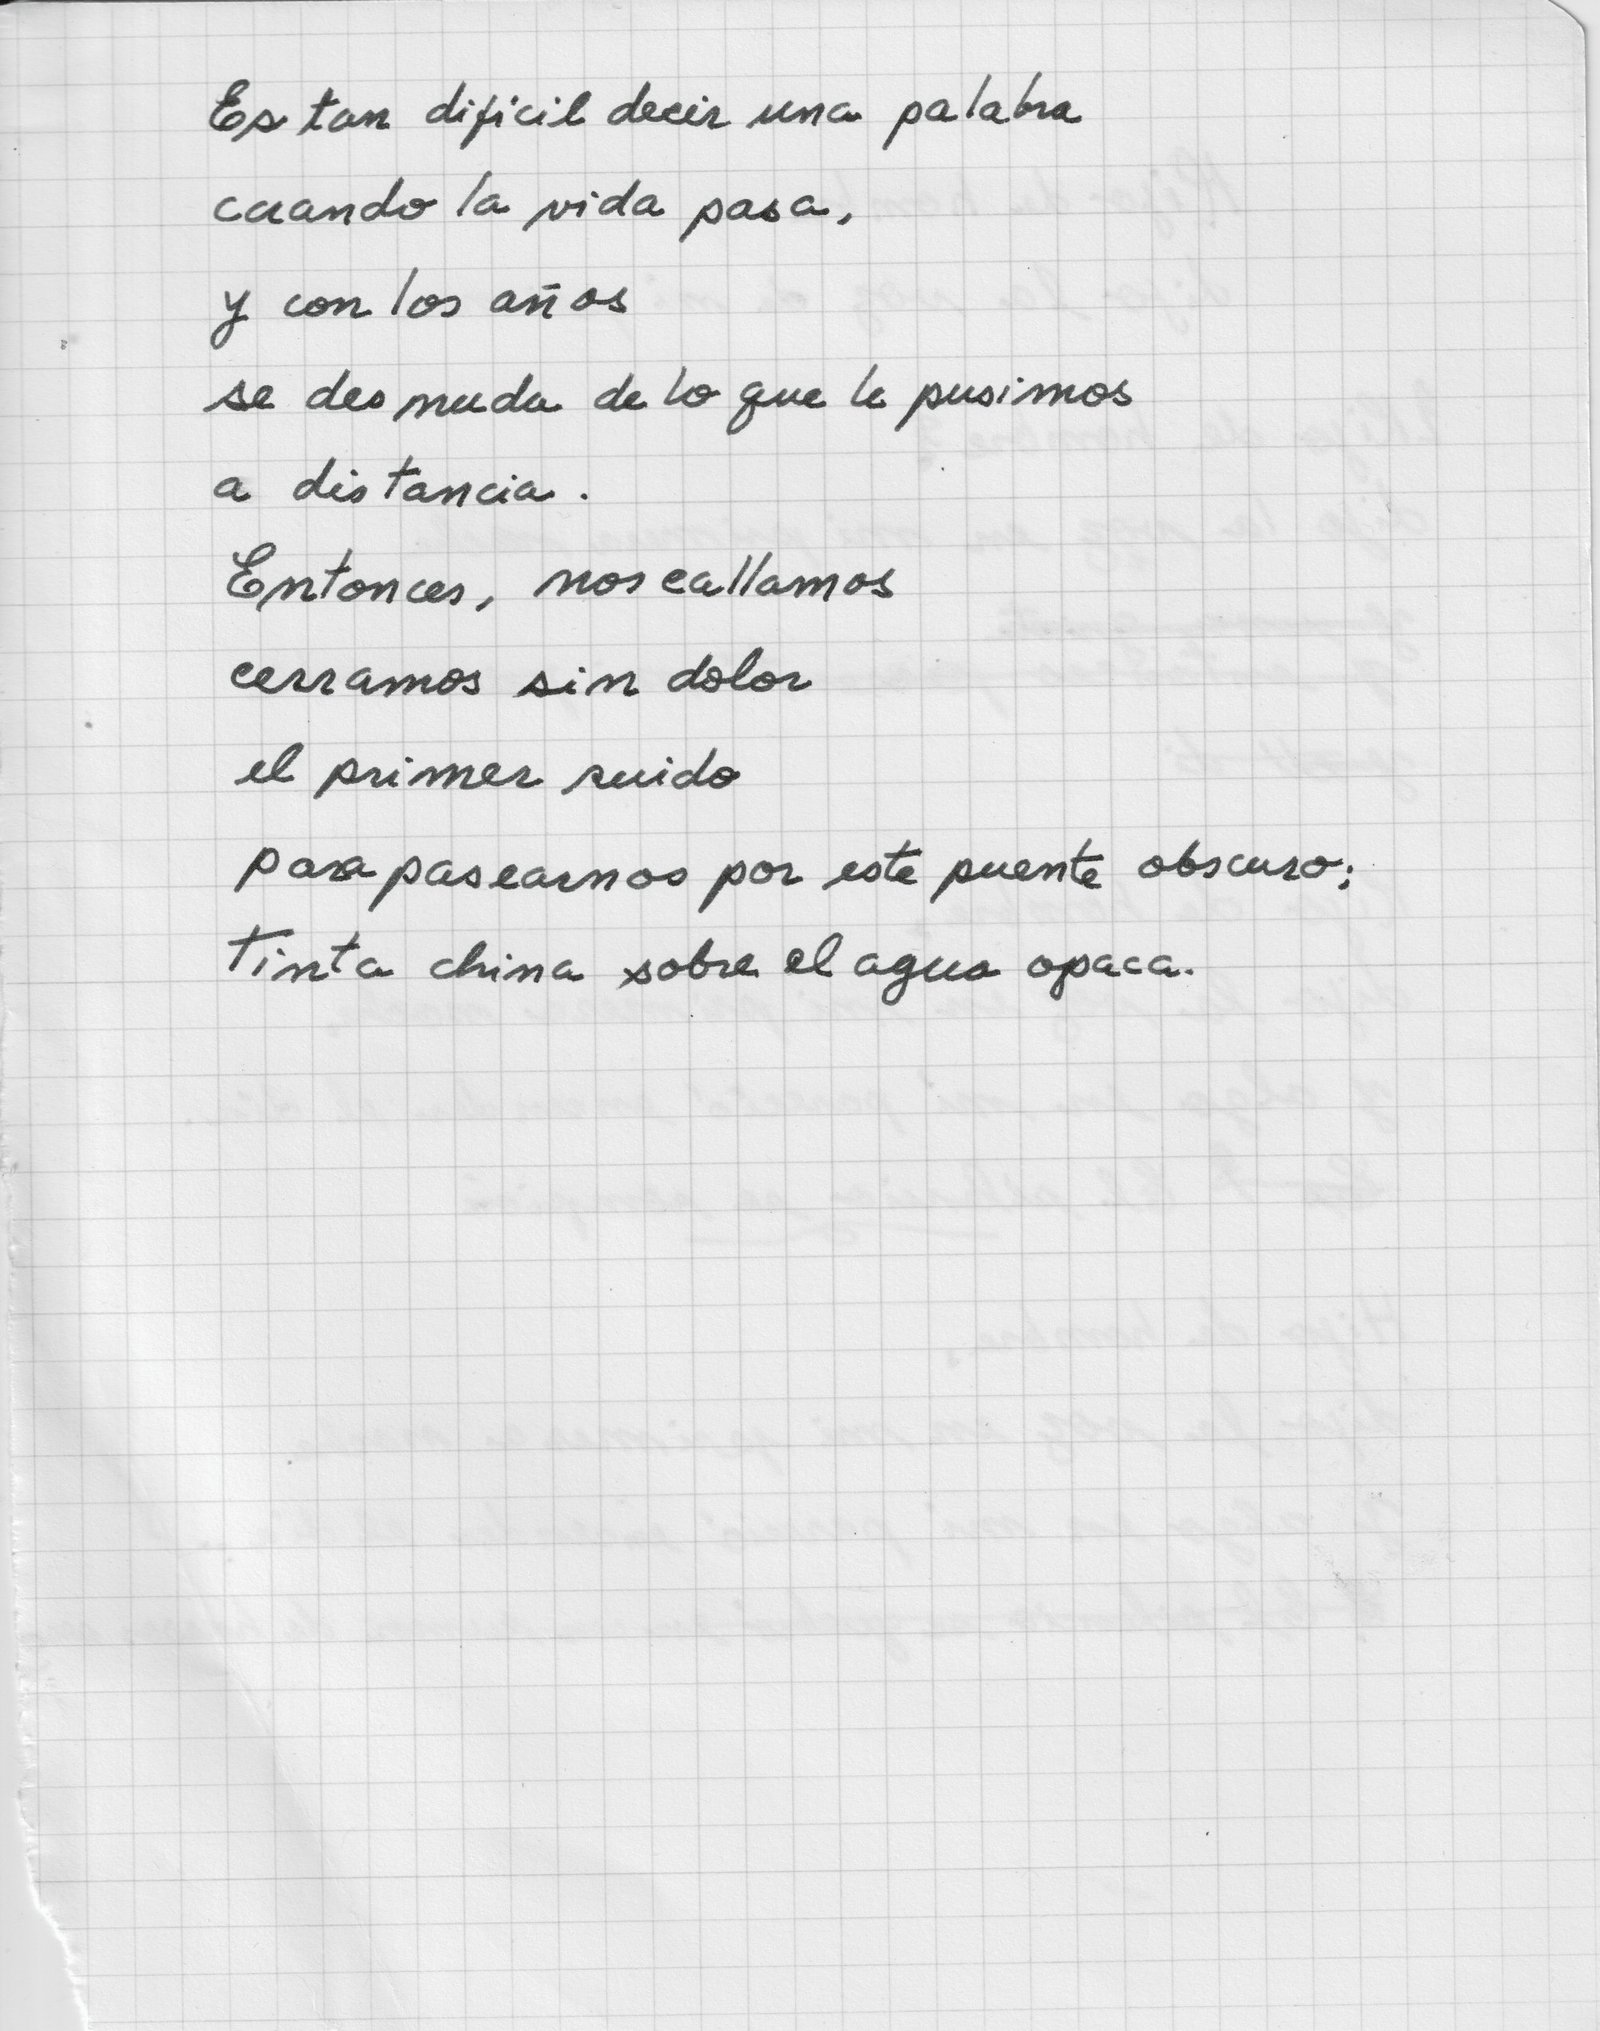 Es tan dificil decir una palabra
cuando la vida pasa,
y con los años
se desnuda de lo que le pusimos
a distancia.
Entonces, nos callamos
cerramos sin dolor
el primer ruido
para pasearnos por este puente obscuro;
Tinta china sobre el agua opaca.